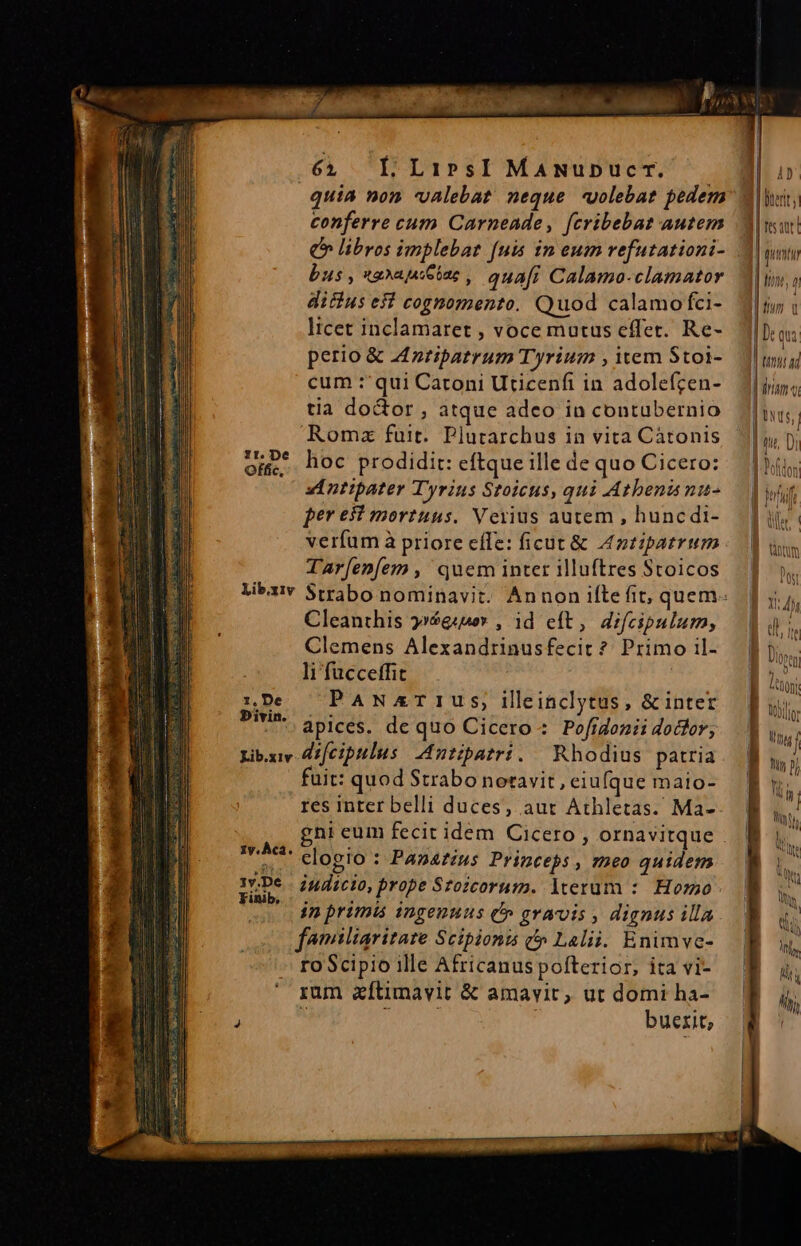 62 I. LIPSI MANUDUCT.
quia non valebat neque volebat pedem
conferre cum Carneade, ſcribebat autem
& libros implebat ſuis in eum refutationi-
bus, καλαμοβόας, quaſi Calamo-clamator
dictus eſt cognomento. Quod calamo ſci-
licet inclamaret, voce mutus eſſet. Re-
perio & Antipatrum Tyrium, item Stoi-
cum: qui Catoni Uticenſi in adoleſcen-
tia doctor, atque adeo in contubernio
Romæ fuit. Plutarchus in vita Catonis
II. De Offic. hoc prodidit: eſtque ille de quo Cicero:
Antipater Tyrius Stoicus, qui Athenis nu-
per eſt mortuus. Verius autem, hunc di-
verſum à priore eſſe: ſicut & Antipatrum
Tarſenſem, quem inter illuſtres Stoicos
Lib. XIV Strabo nominavit. An non iſte ſit, quem
Cleanthis γνώριμον, id eſt, diſcipulum,
Clemens Alexandrinus fecit? Primo il-
li ſucceſſit
I. De Divin. PANÆTIUS, ille inclytus, & inter
apices. de quo Cicero: Poſidonii doctor,
Lib. XIV diſcipulus Antipatri. Rhodius patria
fuit: quod Strabo notavit, eiuſque maio-
res inter belli duces, aut Athletas. Ma-
gni eum fecit idem Cicero, ornavitque
IV. Aca. elogio: Panætius Princeps, meo quidem
IV. De Finib. iudicio, prope Stoicorum. Iterum: Homo
in primis ingenuus & gravis, dignus illa
familiaritate Scipionis & Lælii. Enimve-
ro Scipio ille Africanus poſterior, ita vi-
rum æſtimavit & amavit, ut domi ha-
buerit,